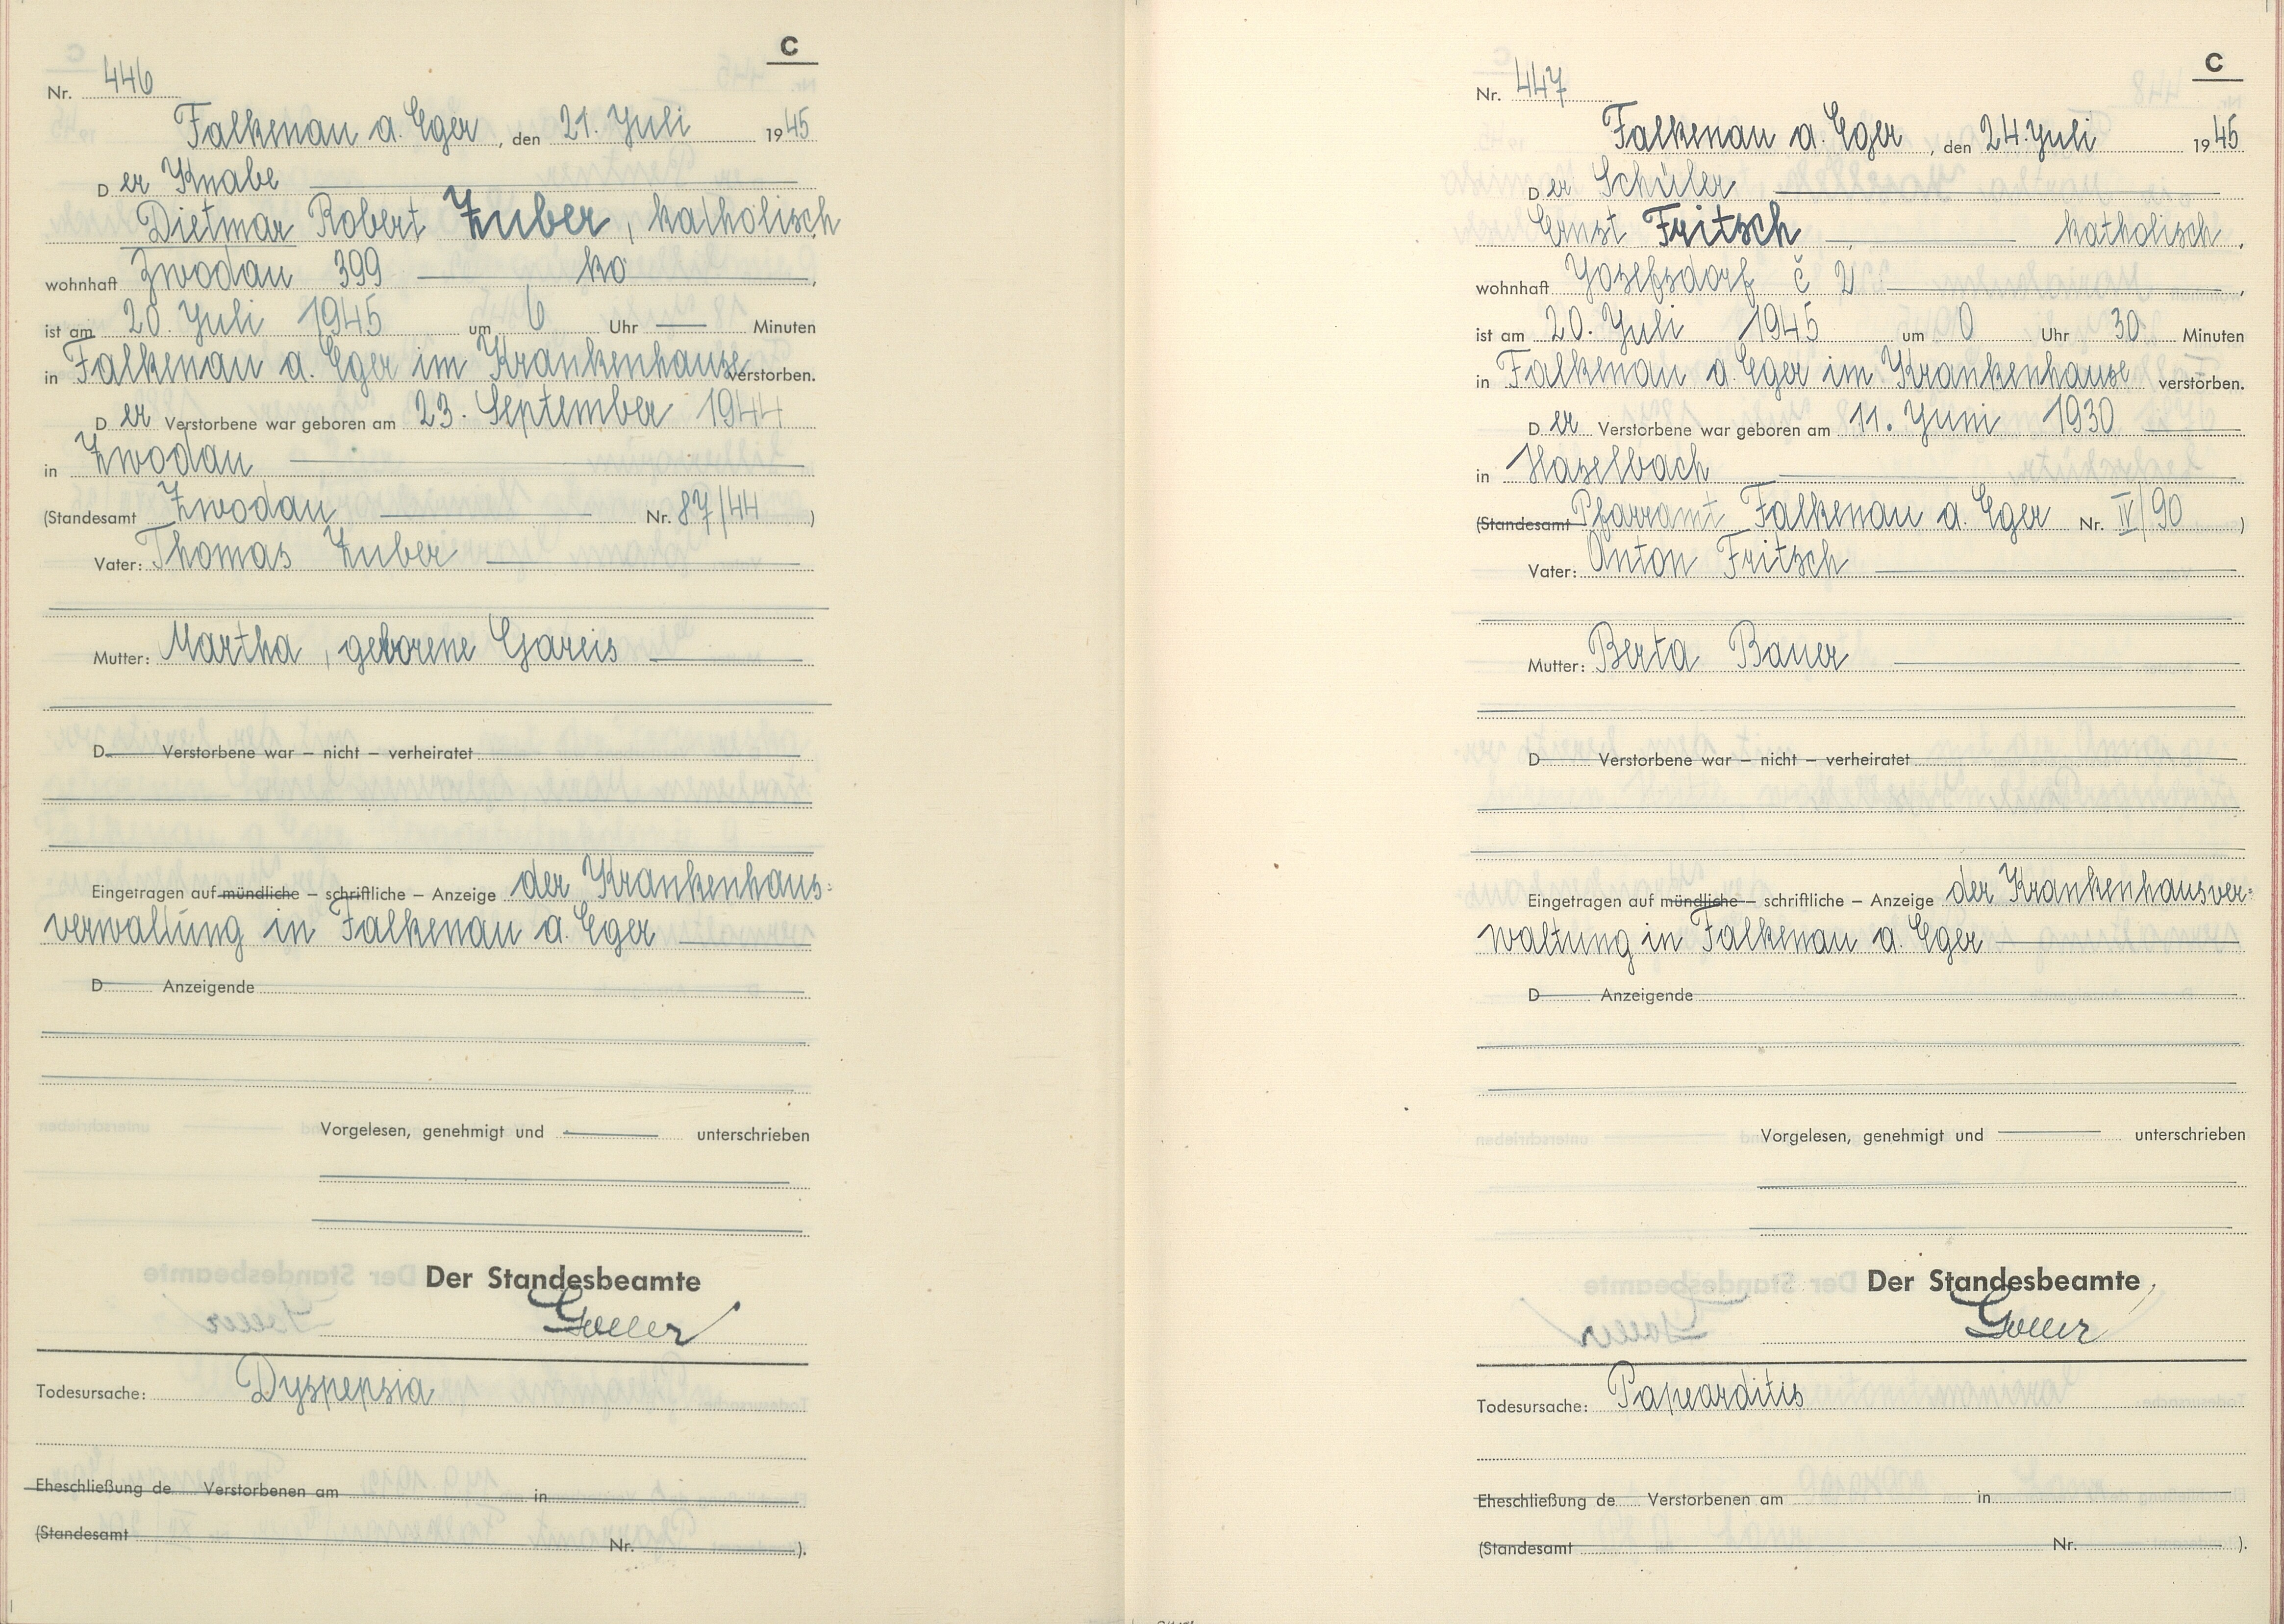 C
Nr. 446
Falkenau a. Eger, den 21. Juli 1945
Der Knabe
Dietmar Robert Zuber, katholisch
wohnhaft Zwodau 399 ko
ist am 20. Juli 1945 um 6 Uhr — Minuten
in Falkenau a. Eger im Krankenhause verstorben.
Der Verstorbene war geboren am 23. September 1944
in Zwodau
(Standesamt Zwodau Nr. 87/44)
Vater: Thomas Zuber
Mutter: Martha, geborene Gareis
D Verstorbene war – nicht – verheiratet
Eingetragen auf mündliche – schriftliche – Anzeige der Krankenhaus=
verwaltung in Falkenau a. Eger
D Anzeigende
Vorgelesen, genehmigt und — unterschrieben
Der Standesbeamte
Goller
Todesursache: Dyspepsia
Eheschließung de Verstorbenen am in
(Standesamt Nr. ).
C
Nr. 447
Falkenau a. Eger, den 24. Juli 1945
Der Schüler
Ernst Fritsch — katholisch,
wohnhaft Josefsdorf č 2
ist am 20. Juli 1945 um 0 Uhr 30 Minuten
in Falkenau a. Eger im Krankenhause verstorben.
Der Verstorbene war geboren am 11. Juni 1930
in Haselbach
(Standesamt Pfarramt Falkenau a. Eger Nr. IV/90)
Vater: Anton Fritsch
Mutter: Berta Bauer
D Verstorbene war – nicht – verheiratet
Eingetragen auf mündliche – schriftliche – Anzeige der Krankenhausver=
waltung in Falkenau a. Eger
D Anzeigende
Vorgelesen, genehmigt und — unterschrieben
Der Standesbeamte
Goller
Todesursache: Papearditis
Eheschließung de Verstorbenen am in
(Standesamt Nr. ).